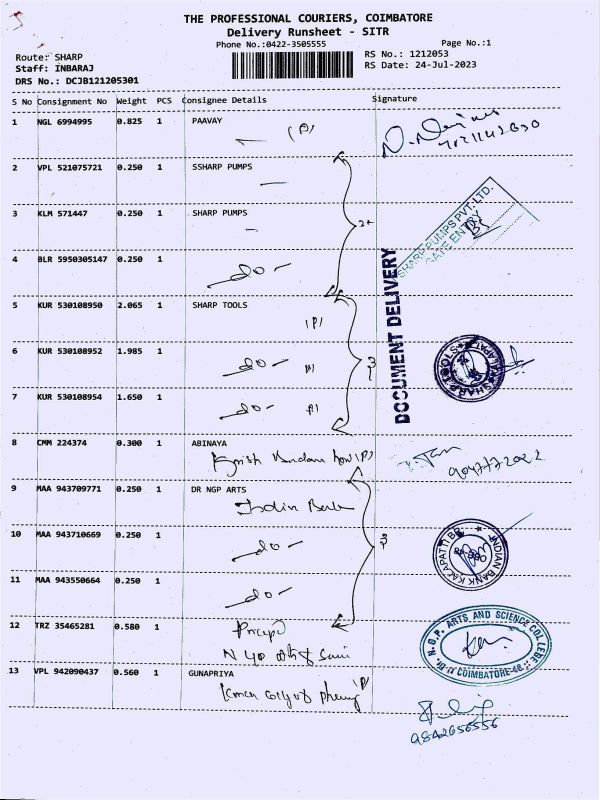 THE PROFESSIONAL COURIERS, COIMBATORE
Delivery Runsheet - SITR
Phone No.:0422-3505555 Page No.:1
Route: SHARP RS No.: 1212053
Staff: INBARAJ RS Date: 24-Jul-2023
DRS No.: DCJB121205301
S No Consignment No Weight PCS Consignee Details Signature
1 NGL 6994995 0.825 1 PAAVAY
(P)
2 VPL 521075721 0.250 1 SSHARP PUMPS
3 KLM 571447 0.250 1 SHARP PUMPS
SHARP PUMPS PVT. LTD.
GATE ENTRY
4 BLR 5950305147 0.250 1
-do-
DOCUMENT DELIVERY
5 KUR 530108950 2.065 1 SHARP TOOLS
(P)
6 KUR 530108952 1.985 1
-do-
7 KUR 530108954 1.650 1
-do-
8 CMM 224374 0.300 1 ABINAYA
9 MAA 943709771 0.250 1 DR NGP ARTS
Indian Bank
10 MAA 943710669 0.250 1
-do-
INDIAN BANK KALAPATTI BR
11 MAA 943550664 0.250 1
-do-
12 TRZ 35465281 0.580 1
Dr. N.G.P. ARTS AND SCIENCE COLLEGE
COIMBATORE-48
13 VPL 942090437 0.560 1 GUNAPRIYA
9842656556